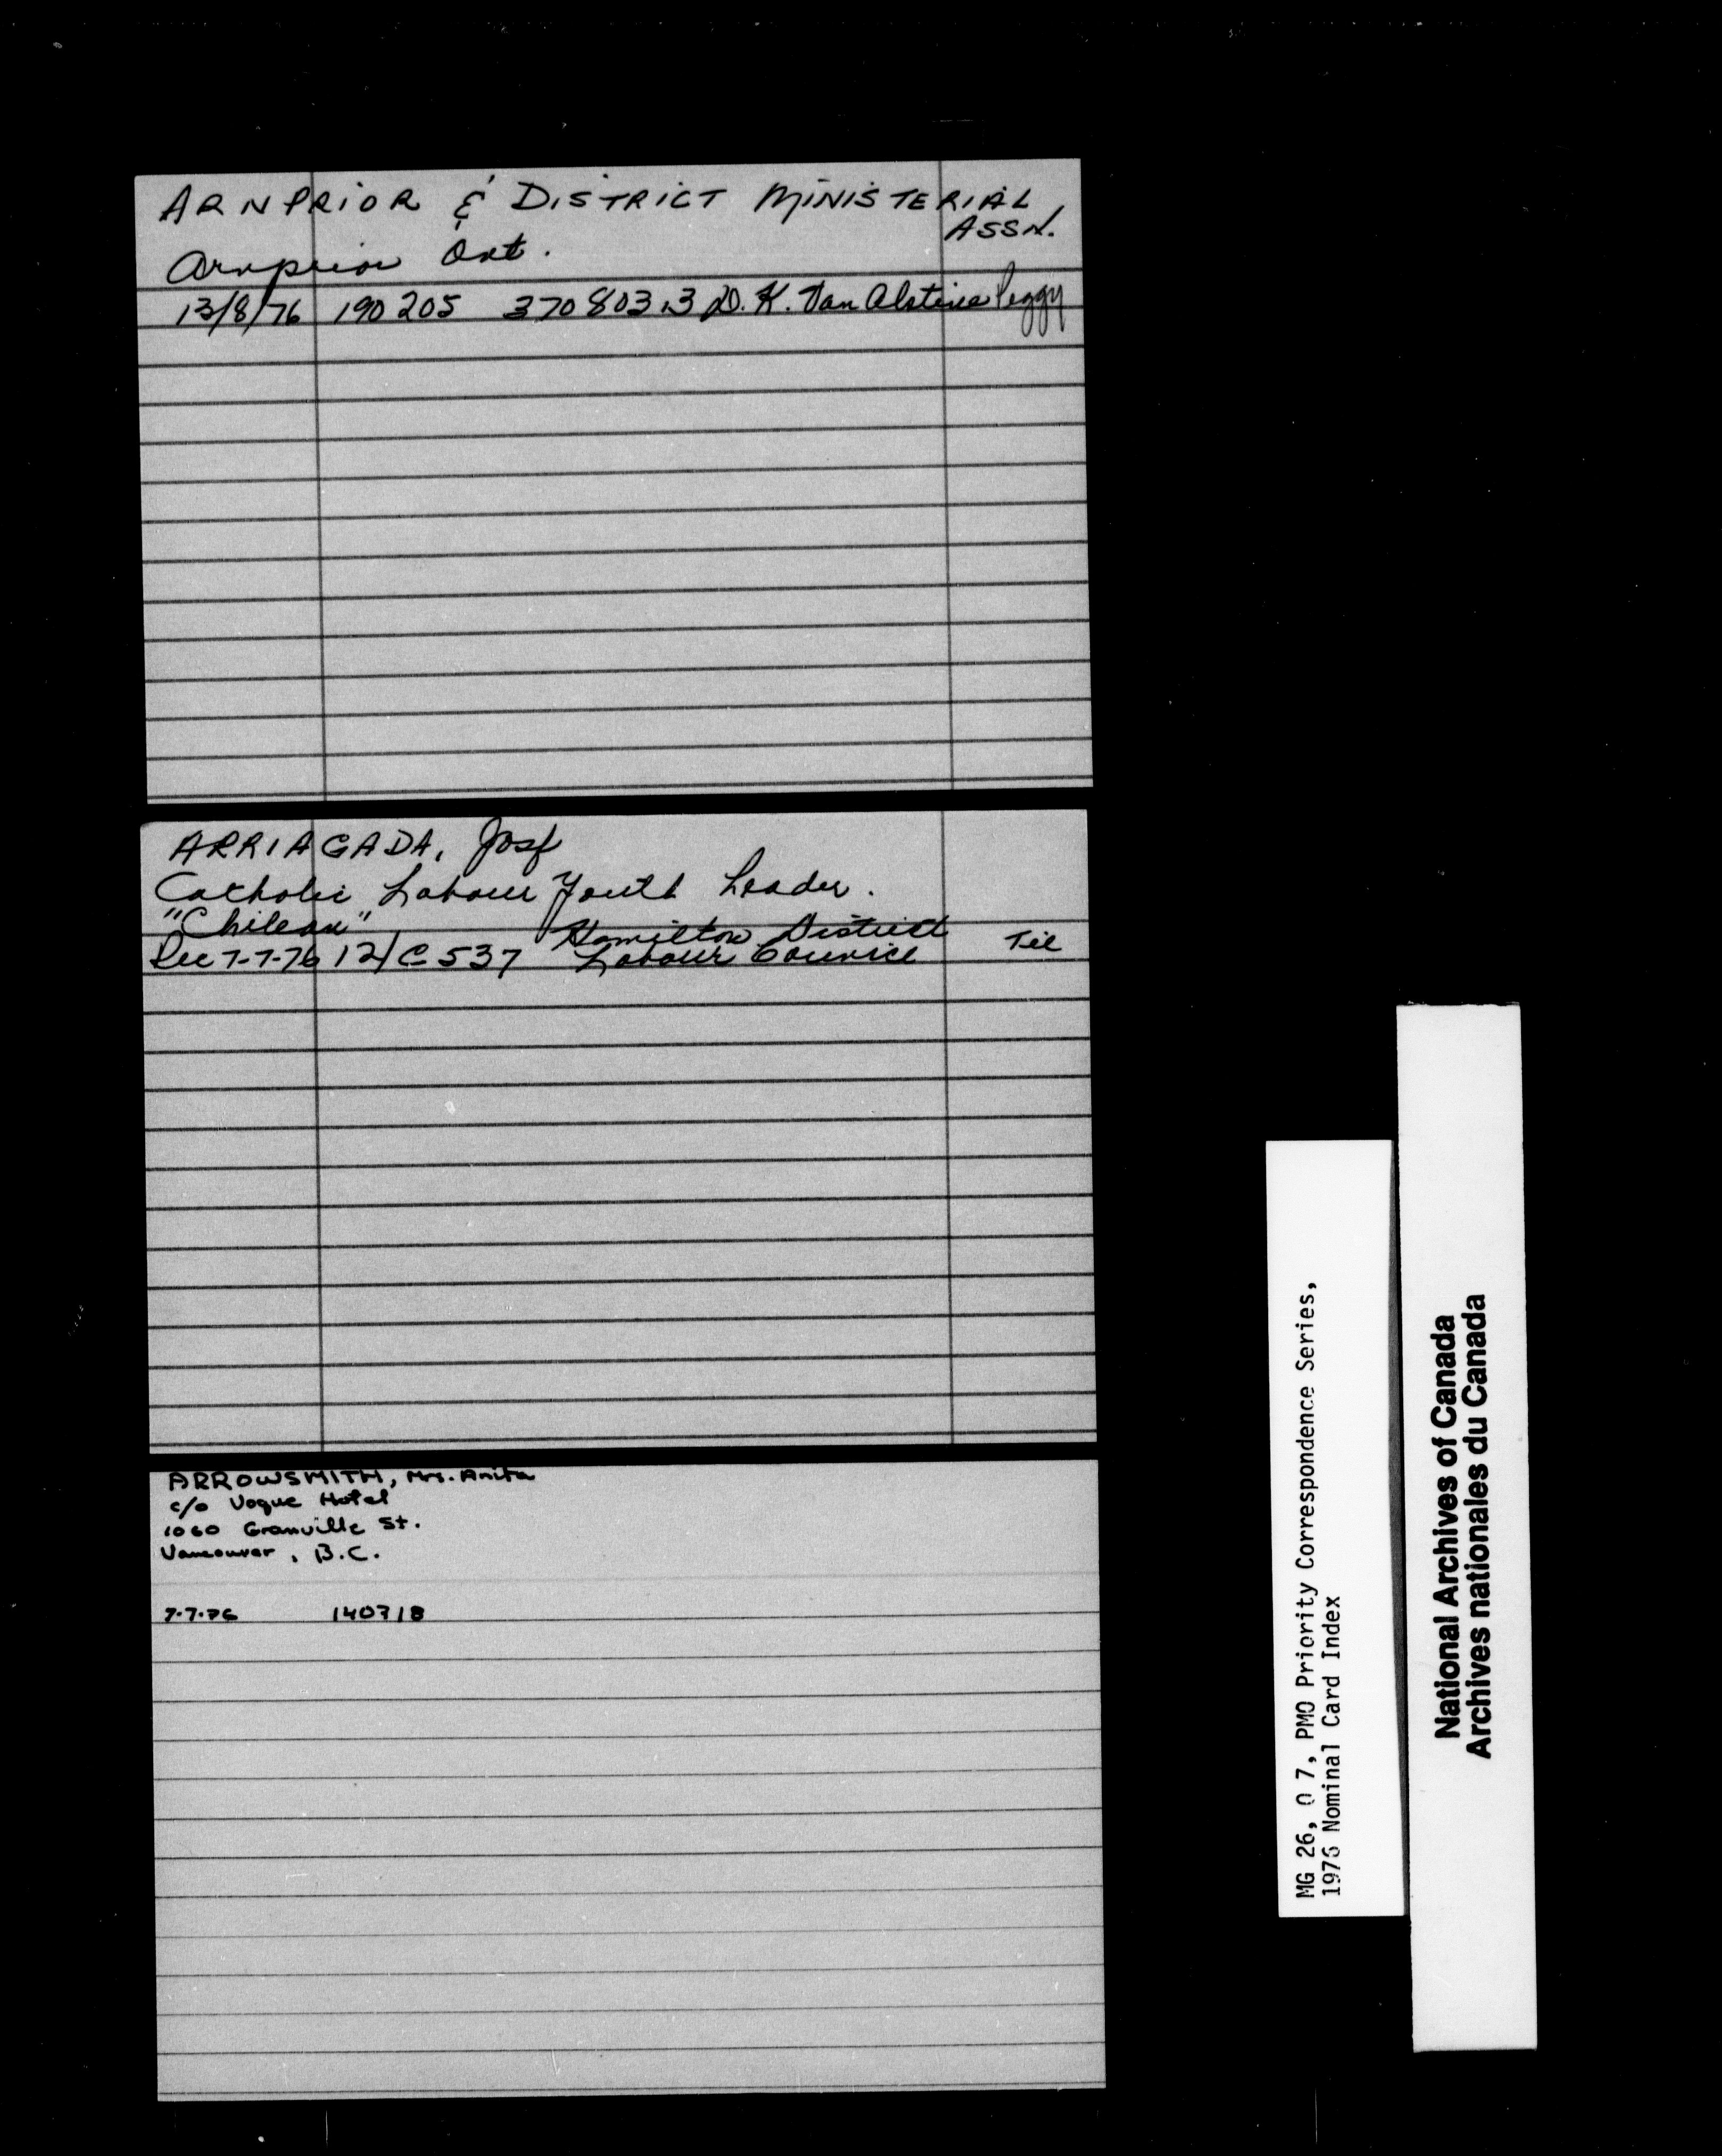 ARNPRIOR & DISTRICT MINISTERIAL
ASSN.
Arnprior Ont.
13/8/76 190 205 370 803.3 D.K. Van Alstine Peggy
ARRIAGADA, Josf
Catholic Labour Youth Leader.
"Chilean"
Rec 7-7-76 12/C 537 Hamilton District
Labour Council
ARROWSMITH, Mrs. Anita
c/o Vogue Hotel
1060 Granville St.
Vancouver, B.C.
7.7.76 140718
MG 26, O 7, PMO Priority Correspondence Series,
1976 Nominal Card Index
National Archives of Canada
Archives nationales du Canada